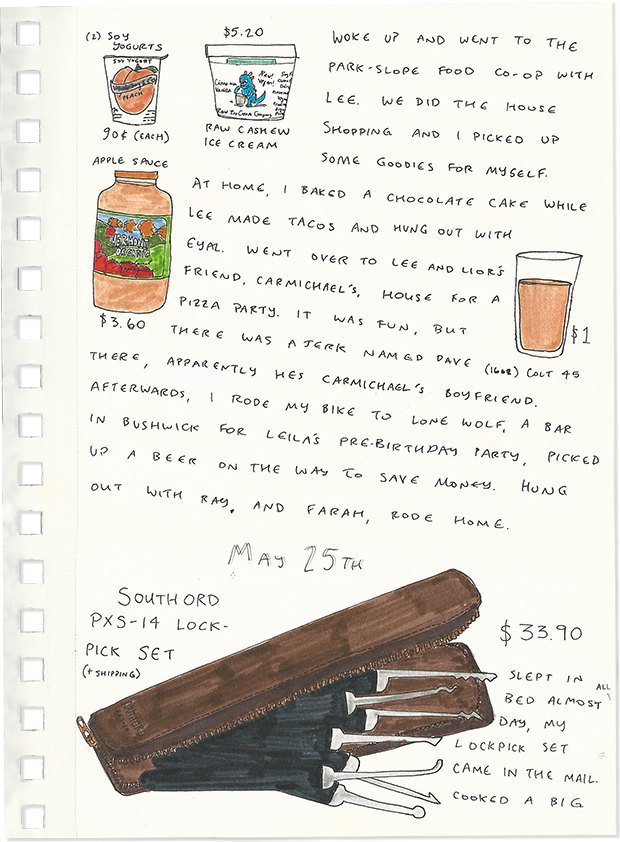 (2) SOY
YOGURTS
SOY YOGURT
PEACH
90¢ (EACH)
$5.20
NEW!
VEGAN!
VANILLA
RAW CASHEW
ICE CREAM
WOKE UP AND WENT TO THE
PARK-SLOPE FOOD CO-OP WITH
LEE. WE DID THE HOUSE
SHOPPING AND I PICKED UP
SOME GOODIES FOR MYSELF.
APPLE SAUCE
VERMONT
ORGANIC
$3.60
AT HOME, I BAKED A CHOCOLATE CAKE WHILE
LEE MADE TACOS AND HUNG OUT WITH
EYAL. WENT OVER TO LEE AND LIOR'S
FRIEND, CARMICHAEL'S, HOUSE FOR A
PIZZA PARTY. IT WAS FUN, BUT
THERE WAS A JERK NAMED DAVE
THERE, APPARENTLY HES CARMICHAEL'S BOYFRIEND.
AFTERWARDS, I RODE MY BIKE TO LONE WOLF, A BAR
IN BUSHWICK FOR LEILA'S PRE-BIRTHDAY PARTY, PICKED
UP A BEER ON THE WAY TO SAVE MONEY. HUNG
OUT WITH RAY, AND FARAH, RODE HOME.
$1
(16OZ) COLT 45
MAY 25TH
SOUTHORD
PXS-14 LOCK-
PICK SET
(+ SHIPPING)
SOUTHORD
$33.90
SLEPT IN
BED ALMOST ALL
DAY, MY
LOCKPICK SET
CAME IN THE MAIL.
COOKED A BIG